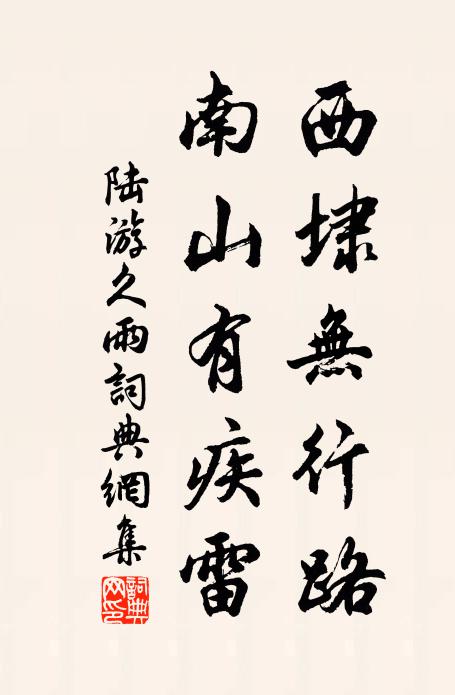 西埭無行路
南山有疾雷
陸游久雨詞典網集
詞典網印